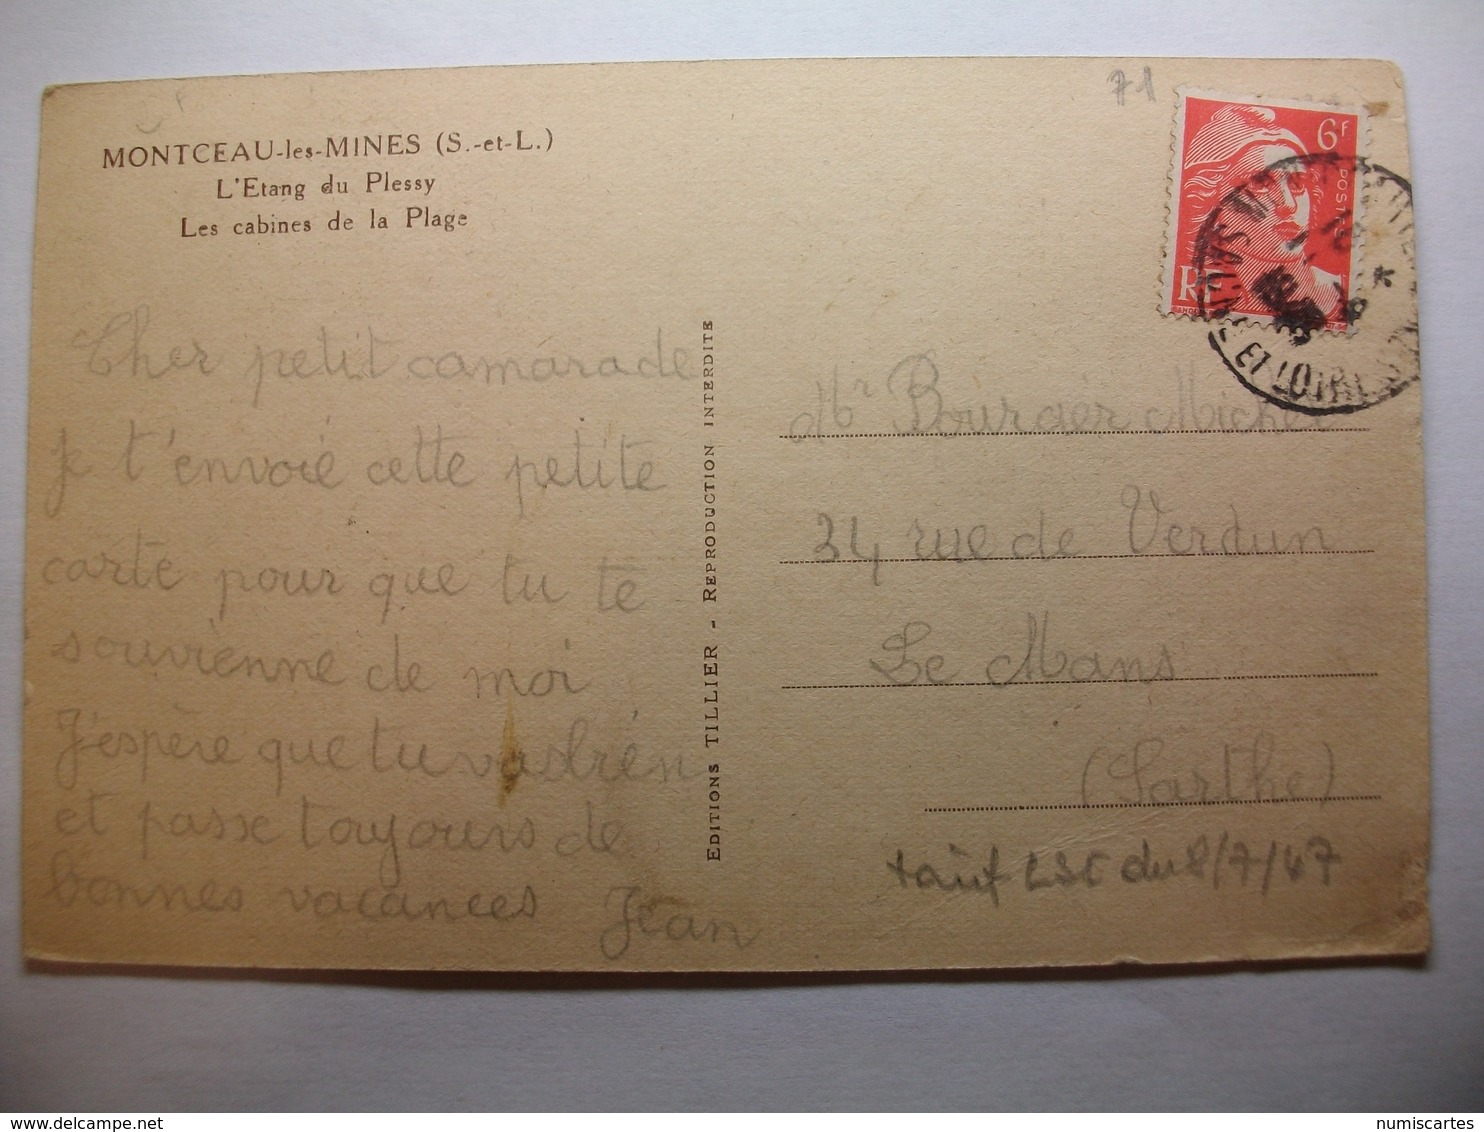 71
MONTCEAU-les-MINES (S.-et-L.)
L'Etang du Plessy
Les cabines de la Plage
6F
POSTES
RF
ET LOIRE
Cher petit camarade
je t'envoie cette petite
carte pour que tu te
souvienne de moi
J'espère que tu vas bien
et passe toujours de
bonnes vacances Jean
EDITIONS TILLIER - REPRODUCTION INTERDITE
Mr Bourcier Michel
34 rue de Verdun
Le Mans
(Sarthe)
tarif du 8/7/47
delcampe.net
numiscartes